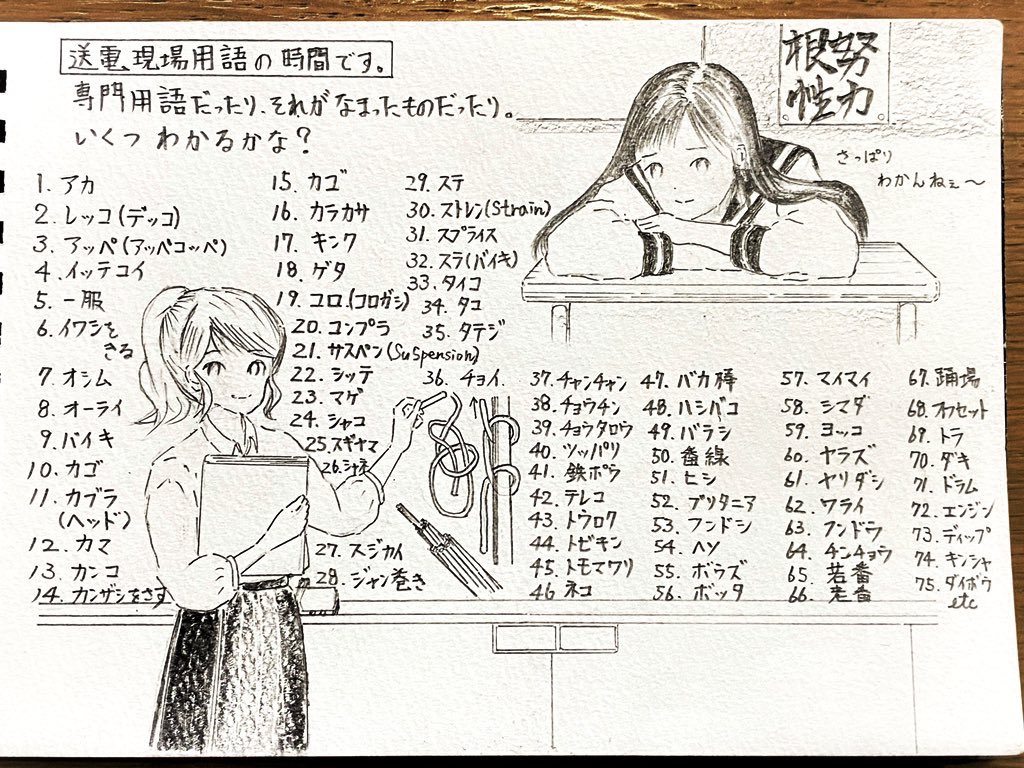 送電、現場用語の時間です。
専門用語だったり、それがなまったものだったり。
いくつ わかるかな？
努力
根性
さっぱり
わかんねぇ〜
1. アカ
2. レッコ(デッコ)
3. アッペ(アッペコッペ)
4. イッテコイ
5. 一服
6. イワシを
きる
7. オシム
8. オーライ
9. バイキ
10. カゴ
11. カブラ
(ヘッド)
12. カマ
13. カンコ
14. カンザシをさす
15. カゴ
16. カラカサ
17. キンク
18. ゲタ
19. コロ.(コロガシ)
20. コンプラ
21. サスペン(Suspension)
22. シッテ
23. マゲ
24. シャコ
25. スギヤマ
26.
27. スジカイ
28. ジャン巻き
29. ステ
30. ストレン(Strain)
31. スプライス
32. スラ(バイキ)
33. タイコ
34. タコ
35. タテジ
36. チョイ.
37. チャンチャン
38. チョウチン
39. チョウタロウ
40. ツッパリ
41. 鉄ポウ
42. テレコ
43. トウロク
44. トビキン
45. トモマワリ
46 ネコ
47. バカ棒
48. ハシバコ
49. バラシ
50. 番線
51. ヒシ
52. ブリタニア
53. フンドシ
54. ヘソ
55. ボウズ
56. ボッタ
57. マイマイ
58. シマダ
59. ヨッコ
60. ヤラズ
61. ヤリダシ
62. ワライ
63. フンドウ
64. チンチョウ
65. 若番
66. 老番
67. 踊場
68. オフセット
69. トラ
70. ダキ
71. ドラム
72. エンジン
73. ディップ
74. キンシャ
75. ダイボウ
etc